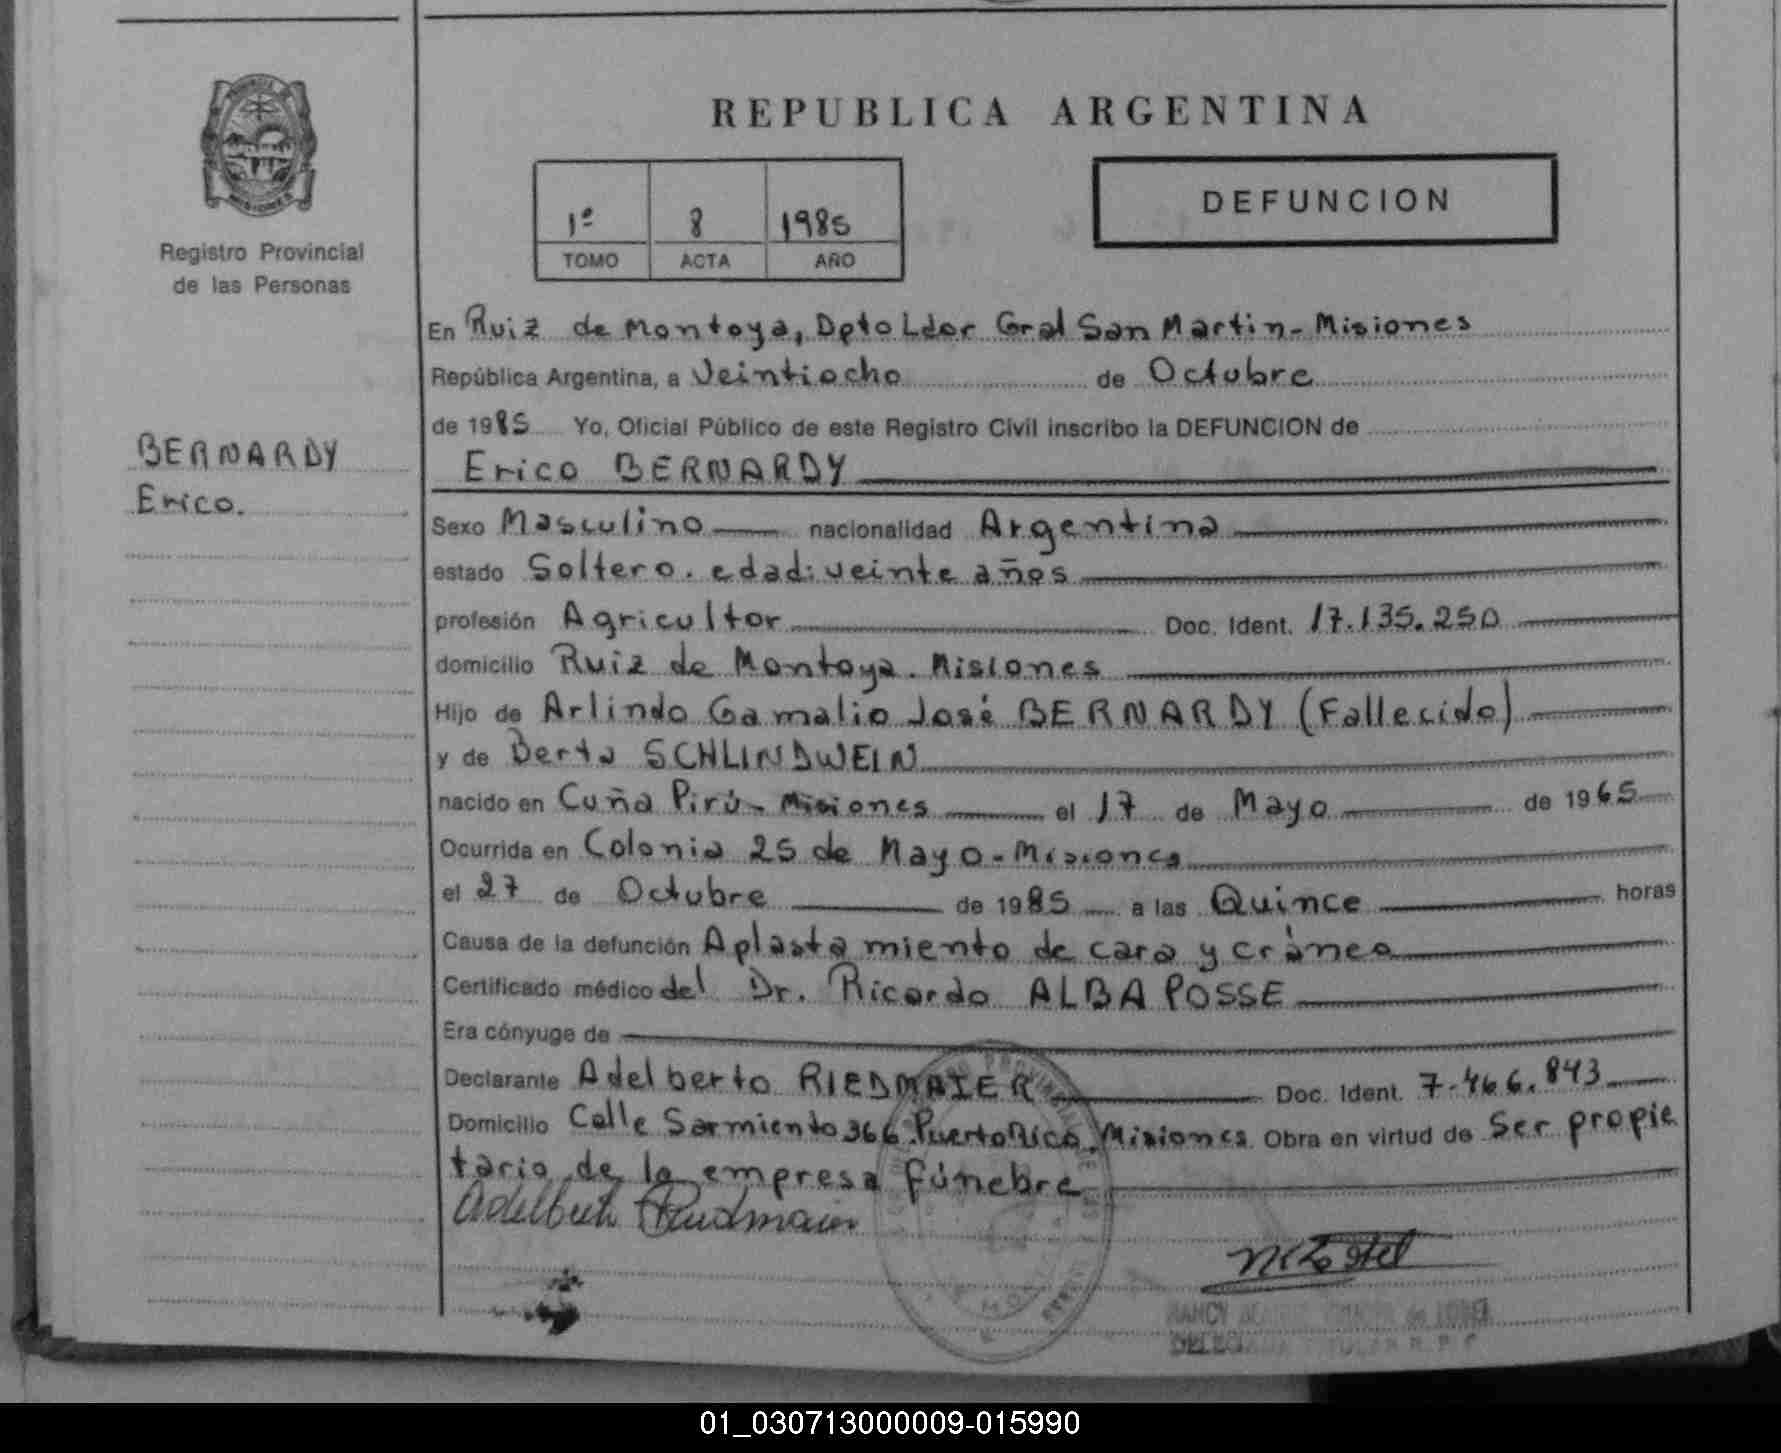 REPUBLICA ARGENTINA
1º 8 1985
TOMO ACTA AÑO
DEFUNCION
Registro Provincial
de las Personas
BERNARDY
Erico.
En Ruiz de Montoya, Dpto Ldor Gral San Martin - Misiones
República Argentina, a Veintiocho de Octubre
de 1985 Yo, Oficial Público de este Registro Civil inscribo la DEFUNCION de
Erico BERNARDY
Sexo Masculino nacionalidad Argentina
estado Soltero. edad: veinte años
profesión Agricultor Doc. Ident. 17.135.250
domicilio Ruiz de Montoya. Misiones
Hijo de Arlindo Gamalio José BERNARDY (Fallecido)
y de Berta SCHLINDWEIN
nacido en Cuña Pirú - Misiones el 17 de Mayo de 1965
Ocurrida en Colonia 25 de Mayo - Misiones
el 27 de Octubre de 1985 a las Quince horas
Causa de la defunción Aplastamiento de cara y cráneo
Certificado médico del Dr. Ricardo ALBA POSSE
Era cónyuge de
Declarante Adelberto RIEDMAIER Doc. Ident. 7.466.843
Domicilio Calle Sarmiento 366 Puerto Rico. Misiones Obra en virtud de Ser propie
tario de la empresa fúnebre
NANCY
01_030713000009-015990